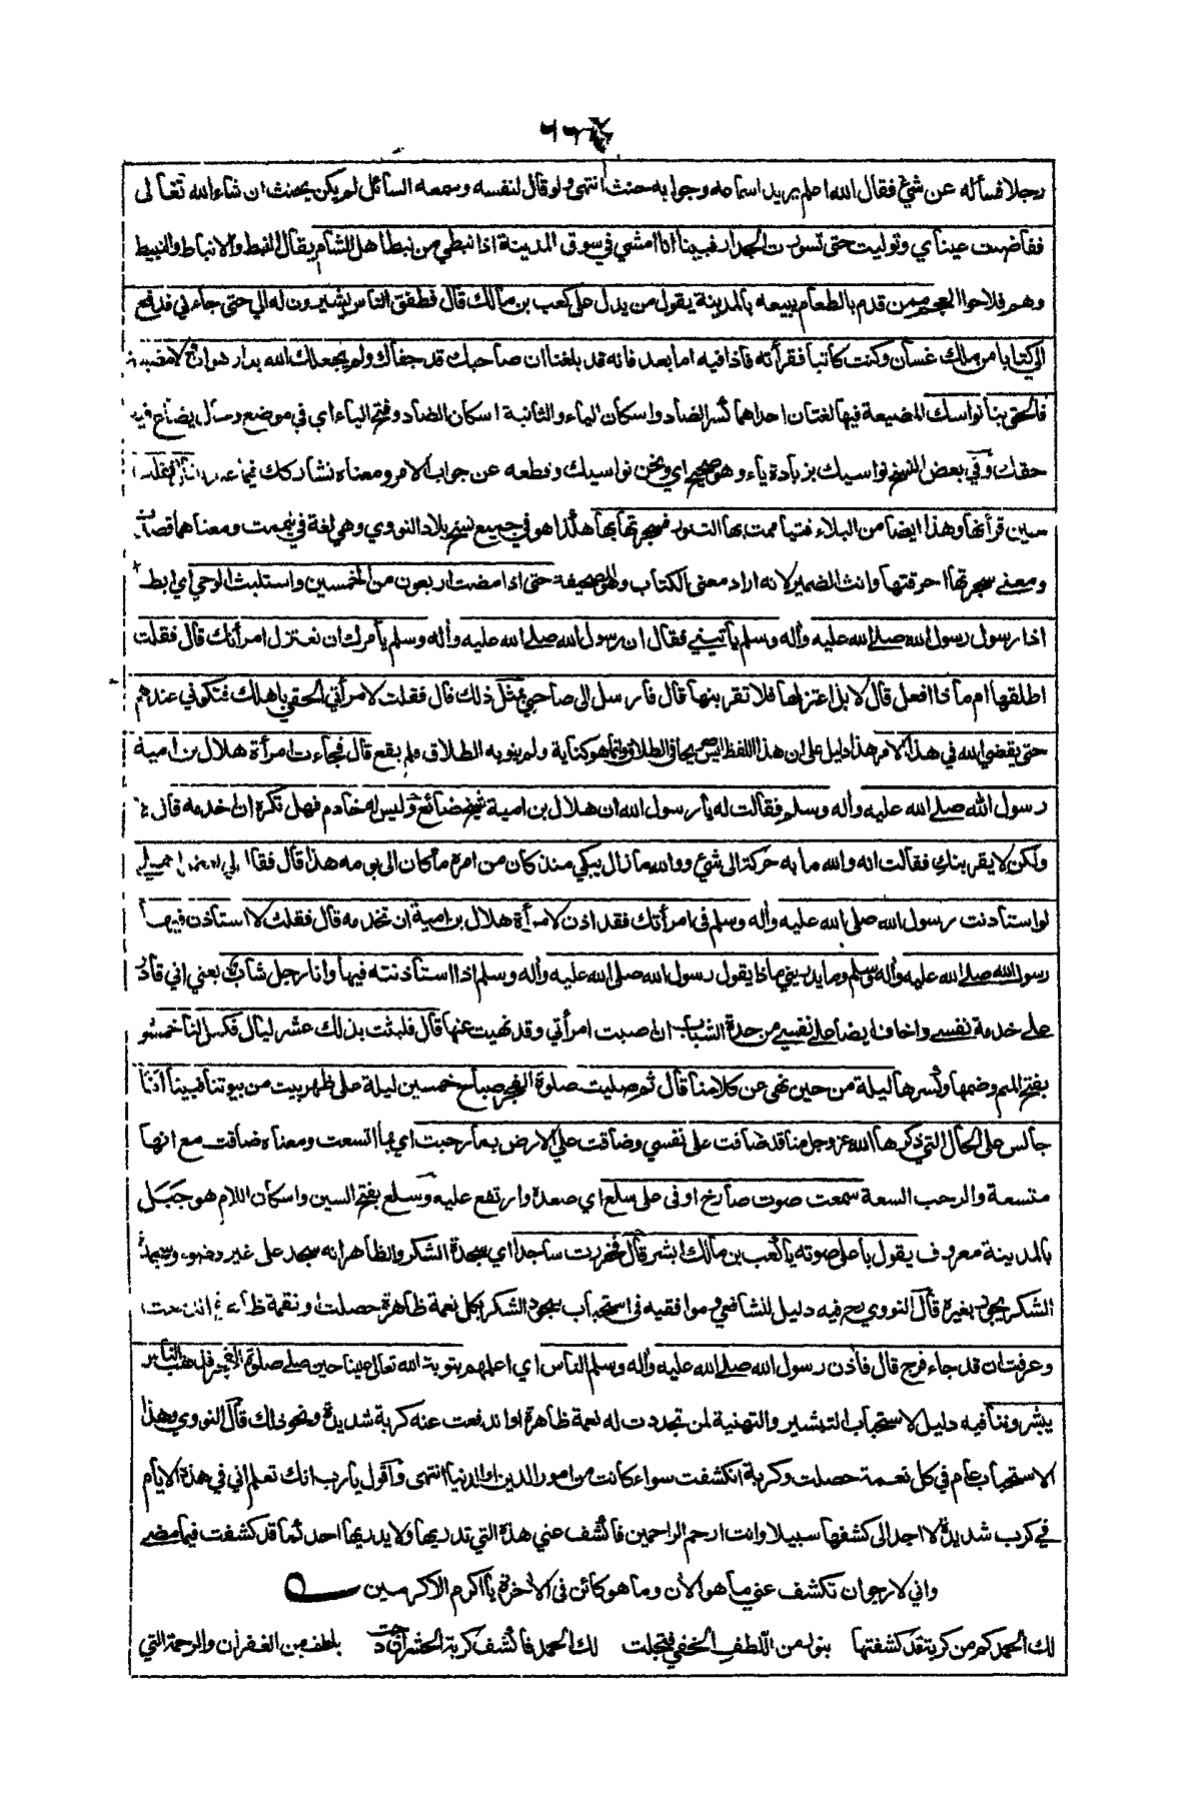 رجلا فسأله عن شئ فقال الله اعلم يريد اسماعه وجوابه حنث انتهى ولو قال لنفسه وسمعه السائل لم يكن يحنث ان شاء الله تعالى
ففاضت عيناي وتوليت حتى تسورت الجدار فبينا انا امشي في سوق المدينة اذا نبطي من نبط اهل الشام يقال النبط والانباط والنبيط
وهم فلاحوا العجم ممن قدم بالطعام يبيعه بالمدينة يقول من يدل على كعب بن مالك قال فطفق الناس يشيرون له الي حتى جاءني فدفع
الي كتابا من ملك غسان وكنت كاتبا فقرأته فاذا فيه اما بعد فانه قد بلغنا ان صاحبك قد جفاك ولم يجعلك الله بدار هوان ولا مضيعة
فالحق بنا نواسك المضيعة فيها لغتان احداهما كسر الضاد واسكان الياء والثانية اسكان الضاد وفتح الياء اي في موضع وحال يضاع فيه
حقك وفي بعض النسخ نواسيك بزيادة ياء وهو صحيح اي ونحن نواسيك وقطعه عن جواب الامر ومعناه نشاركك فيما عندنا قال فقلت
حين قرأتها وهذا ايضا من البلاء فتياممت بها التنور فسجرتها بها هكذا هو في جميع نسخ بلاد النووي وهي لغة في تيممت ومعناهما قصدت
ومعنى سجرتها احرقتها وانث الضمير لانه اراد معنى الكتاب وهو الصحيفة حتى اذا مضت اربعون من الخمسين واستلبث الوحي اي ابطأ
اذا رسول رسول الله صلى الله عليه وآله وسلم يأتيني فقال ان رسول الله صلى الله عليه وآله وسلم يأمرك ان تعتزل امرأتك قال فقلت
اطلقها ام ماذا افعل قال لا بل اعتزلها فلا تقربنها قال فارسل الى صاحبي بمثل ذلك قال فقلت لامرأتي الحقي باهلك فتكوني عندهم
حتى يقضي الله في هذا الامر هذا دليل على ان هذا اللفظ ليس صريحا في الطلاق وانما هو كناية ولم ينو به الطلاق فلم يقع قال فجاءت امرأة هلال بن امية
رسول الله صلى الله عليه وآله وسلم فقالت له يا رسول الله ان هلال بن امية شيخ ضائع وليس له خادم فهل تكره ان اخدمه قال
ولكن لا يقربنك فقالت انه والله ما به حركة الى شئ ووالله ما زال يبكي منذ كان من امره ما كان الى يومه هذا قال فقال لي بعض اهلي
لو استأذنت رسول الله صلى الله عليه وآله وسلم في امرأتك فقد اذن لامرأة هلال بن امية ان تخدمه قال فقلت لا استأذن فيها
رسول الله صلى الله عليه وآله وسلم وما يدريني ماذا يقول رسول الله صلى الله عليه وآله وسلم اذا استأذنته فيها وانا رجل شاب يعني اني قادر
على خدمة نفسي واخاف ايضا على نفسي من حدة الشباب ان اصبت امرأتي وقد نهيت عنها قال فلبثت بذلك عشر ليال فكمل لنا خمسون
بفتح الميم وضمها وكسرها ليلة من حين نهي عن كلامنا قال ثم صليت صلوة الفجر صباح خمسين ليلة على ظهر بيت من بيوتنا فبينا انا
جالس على الحال التي ذكرها الله عز وجل منا قد ضاقت على نفسي وضاقت علي الارض بما رحبت اي بما اتسعت ومعناه ضاقت مع انها
متسعة والرحب السعة سمعت صوت صارخ اوفى على سلع اي صعده وارتفع عليه وسلع بفتح السين واسكان اللام هو جبل
بالمدينة معروف يقول باعلى صوته يا كعب بن مالك ابشر قال فخررت ساجدا اي سجدة الشكر والظاهر انه سجد على غير وضوء وسجدة
الشكر يجوز بغيره قال النووي رح فيه دليل للشافعي وموافقيه في استحباب سجود الشكر بكل نعمة ظاهرة حصلت او نقمة ظاهرة اندفعت
وعرفت ان قد جاء فرج قال فأذن رسول الله صلى الله عليه وآله وسلم الناس اي اعلمهم بتوبة الله تعالى علينا حين صلى صلوة الفجر فذهب الناس
يبشروننا فيه دليل لاستحباب التبشير والتهنية لمن تجددت له نعمة ظاهرة او اندفعت عنه كربة شديدة ونحو ذلك قال النووي وهذا
الاستحباب عام في كل نعمة حصلت وكربة انكشفت سواء كانت من امور الدين او الدنيا انتهى واقول يا رب انك تعلم اني في هذه الايام
في كرب شديدة لا اجد الى كشفها سبيلا وانت ارحم الراحمين فاكشف عني هذه التي تدريها ولا يدريها احد كما قد كشفت فيما مضى
واني لارجو ان تكشف عني ما هو الآن وما هو كائن في الآخرة يا اكرم الاكرمين
لك الحمد كم من كربة قد كشفتها بنول من اللطف الخفي فتجلت لك الحمد فاكشف كربة الحشر بلطف من الغفران والرحمة التي